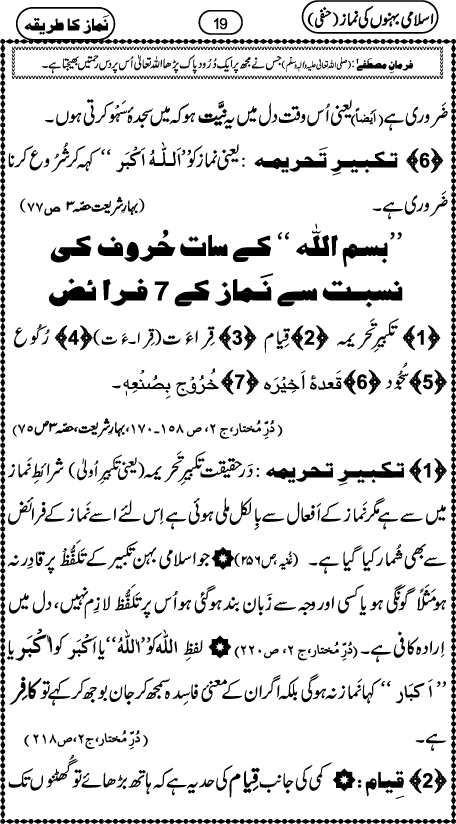 اسلامی بہنوں کی نماز (حنفی) 19 نَماز کا طریقہ
فرمانِ مصطفےٰ: (صلی اللہ تعالیٰ علیہ واٰلہٖ وسلّم) جس نے مجھ پر ایک دُرُود پاک پڑھا اللہ تعالیٰ اُس پر دس رحمتیں بھیجتا ہے۔
ضَروری ہے (اَیضاً) یعنی اُس وقت دل میں یہ نِیَّت ہو کہ میں سجدۂ سَہْو کرتی ہوں۔
﴿6﴾ تکبیرِ تَحریمہ : یعنی نماز کو ’’اَللّٰہُ اَکْبَر‘‘ کہہ کر شُروع کرنا
ضَروری ہے۔ (بہارِ شریعت حصّہ ۳ ص ۷۷)
’’بسم اللّٰہ‘‘ کے سات حُروف کی
نسبت سے نَماز کے 7 فرائض
﴿1﴾ تکبیرِ تَحریمہ ﴿2﴾ قِیام ﴿3﴾ قِراءَت (قِرا۔ءَ ت) ﴿4﴾ رُکُوع
﴿5﴾ سُجُود ﴿6﴾ قَعدۂ اَخیْرَہ ﴿7﴾ خُرُوْجِ بِصُنْعِہٖ۔
(دُرِّ مُختار، ج ۲، ص ۱۵۸-۱۷۰، بہارِ شریعت، حصّہ ۳ ص ۷۵)
﴿1﴾ تکبیرِ تحریمہ : دَرحقیقت تکبیرِ تَحریمہ (یعنی تکبیرِ اُولیٰ) شرائطِ نَماز
میں سے ہے مگر نَماز کے اَفعال سے بِالکل ملی ہوئی ہے اِس لئے اسے نَماز کے فرائض
سے بھی شُمار کیا گیا ہے۔ (غُنیہ ص ۲۵۶) جو اسلامی بہن تکبیر کے تَلَفُّظ پر قادِر نہ
ہو مَثَلاً گونگی ہو یا کسی اور وجہ سے زَبان بند ہو گئی ہو اُس پر تَلَفُّظ لازِم نہیں، دل میں
اِرادہ کافی ہے۔ (دُرِّ مُختار، ج ۲، ص ۲۲۰) لفظِ اللّٰہ کو ’’اٰللّٰہُ‘‘ یا اکبَر کو اٰکْبَر یا
’’اَکبَار‘‘ کہا نَماز نہ ہوگی بلکہ اگر ان کے معنیٔ فاسِدہ سمجھ کر جان بوجھ کر کہے تو کافِر
ہے۔ (دُرِّ مختار، ج۲، ص۲۱۸)
﴿2﴾ قِیام : کمی کی جانِب قِیام کی حد یہ ہے کہ ہاتھ بڑھائے تو گُھٹنوں تک